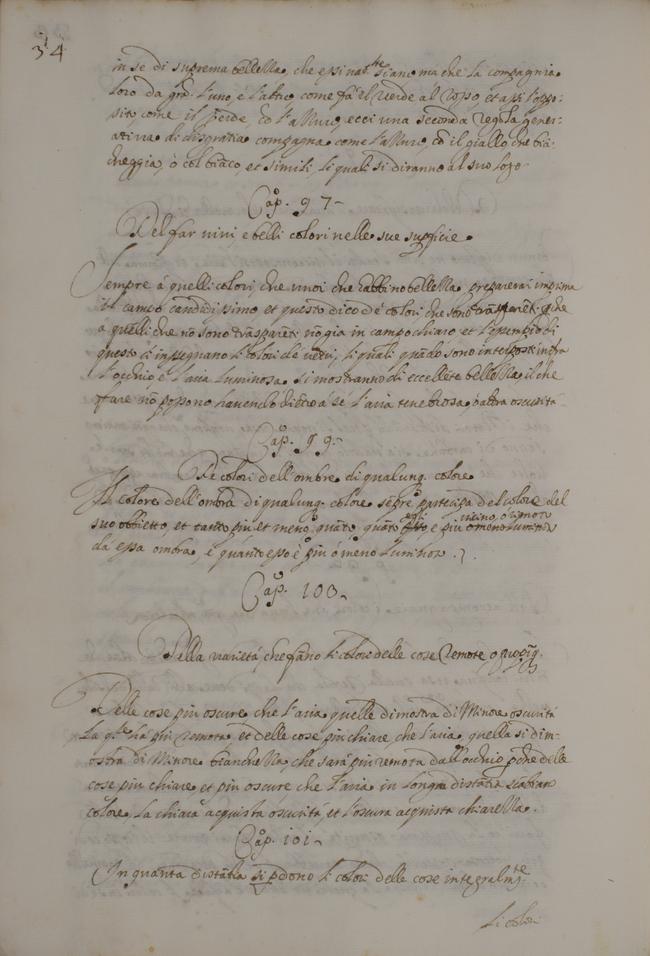 34
in se di suprema bellezza, che essi nat.te siano ma che la compagnia
loro da gra. l'uno, e l'altro come fa il verde al rosso, et assi l'oppo-
sito, come il verde co l'azzurro, ecci una seconda regola gener-
ativa di disgratia compagna come l'azzurro, co il giallo che bia-
cheggia, ò col biaco et simili, li quali si diranno al suo logo.
Cap.o 97.
Del far vivi e belli colori nelle sue supficie.
Sempre à quelli colori, che vuoi che habbino bellezza preparerai imprima
il campo candidissimo et questo dico de colori che sono trasparēti, che
a quelli che nō sono trasparēti nō gia in campo chiaro et l'esempio di
questo ci insegnano li colori dè vetri, li quali quādo sono interposti infra
l'occhio e l'aria luminosa si mostranno di eccellēte bellezza il che
fare nō possono havendo dietro a sè l'aria tenebrosa ò altra oscurità
Cap.o 99.
De colori dell'ombre di qualunq. colore
Il colore dell'ombra di qualunq. colore sēpre partecipa del colore del
suo obbietto, et tanto più et meno, quāto egli è più vicino, ò remoto
da essa ombra, e quanto esso è più ò meno luminoso.
Cap.o 100.
Della varietà, che fāno li colori delle cose remote o ,ppīq.
Delle cose più oscure che l'aria quelle dimostra di Minore oscurità
la q.le ha più remota, et delle cose più chiare, che l'aria, quella si dim-
ostra di Minore bianchezza che sarà più remota dall'occhio pche delle
cose più chiare et più oscure che l'aria in longa distātia scābian
colore la chiara acquista oscurità et l'oscura acquista chiarezza.
Cap.o 101.
In quanta distātia si pdono li colori delle cose integralm.te
Li colori